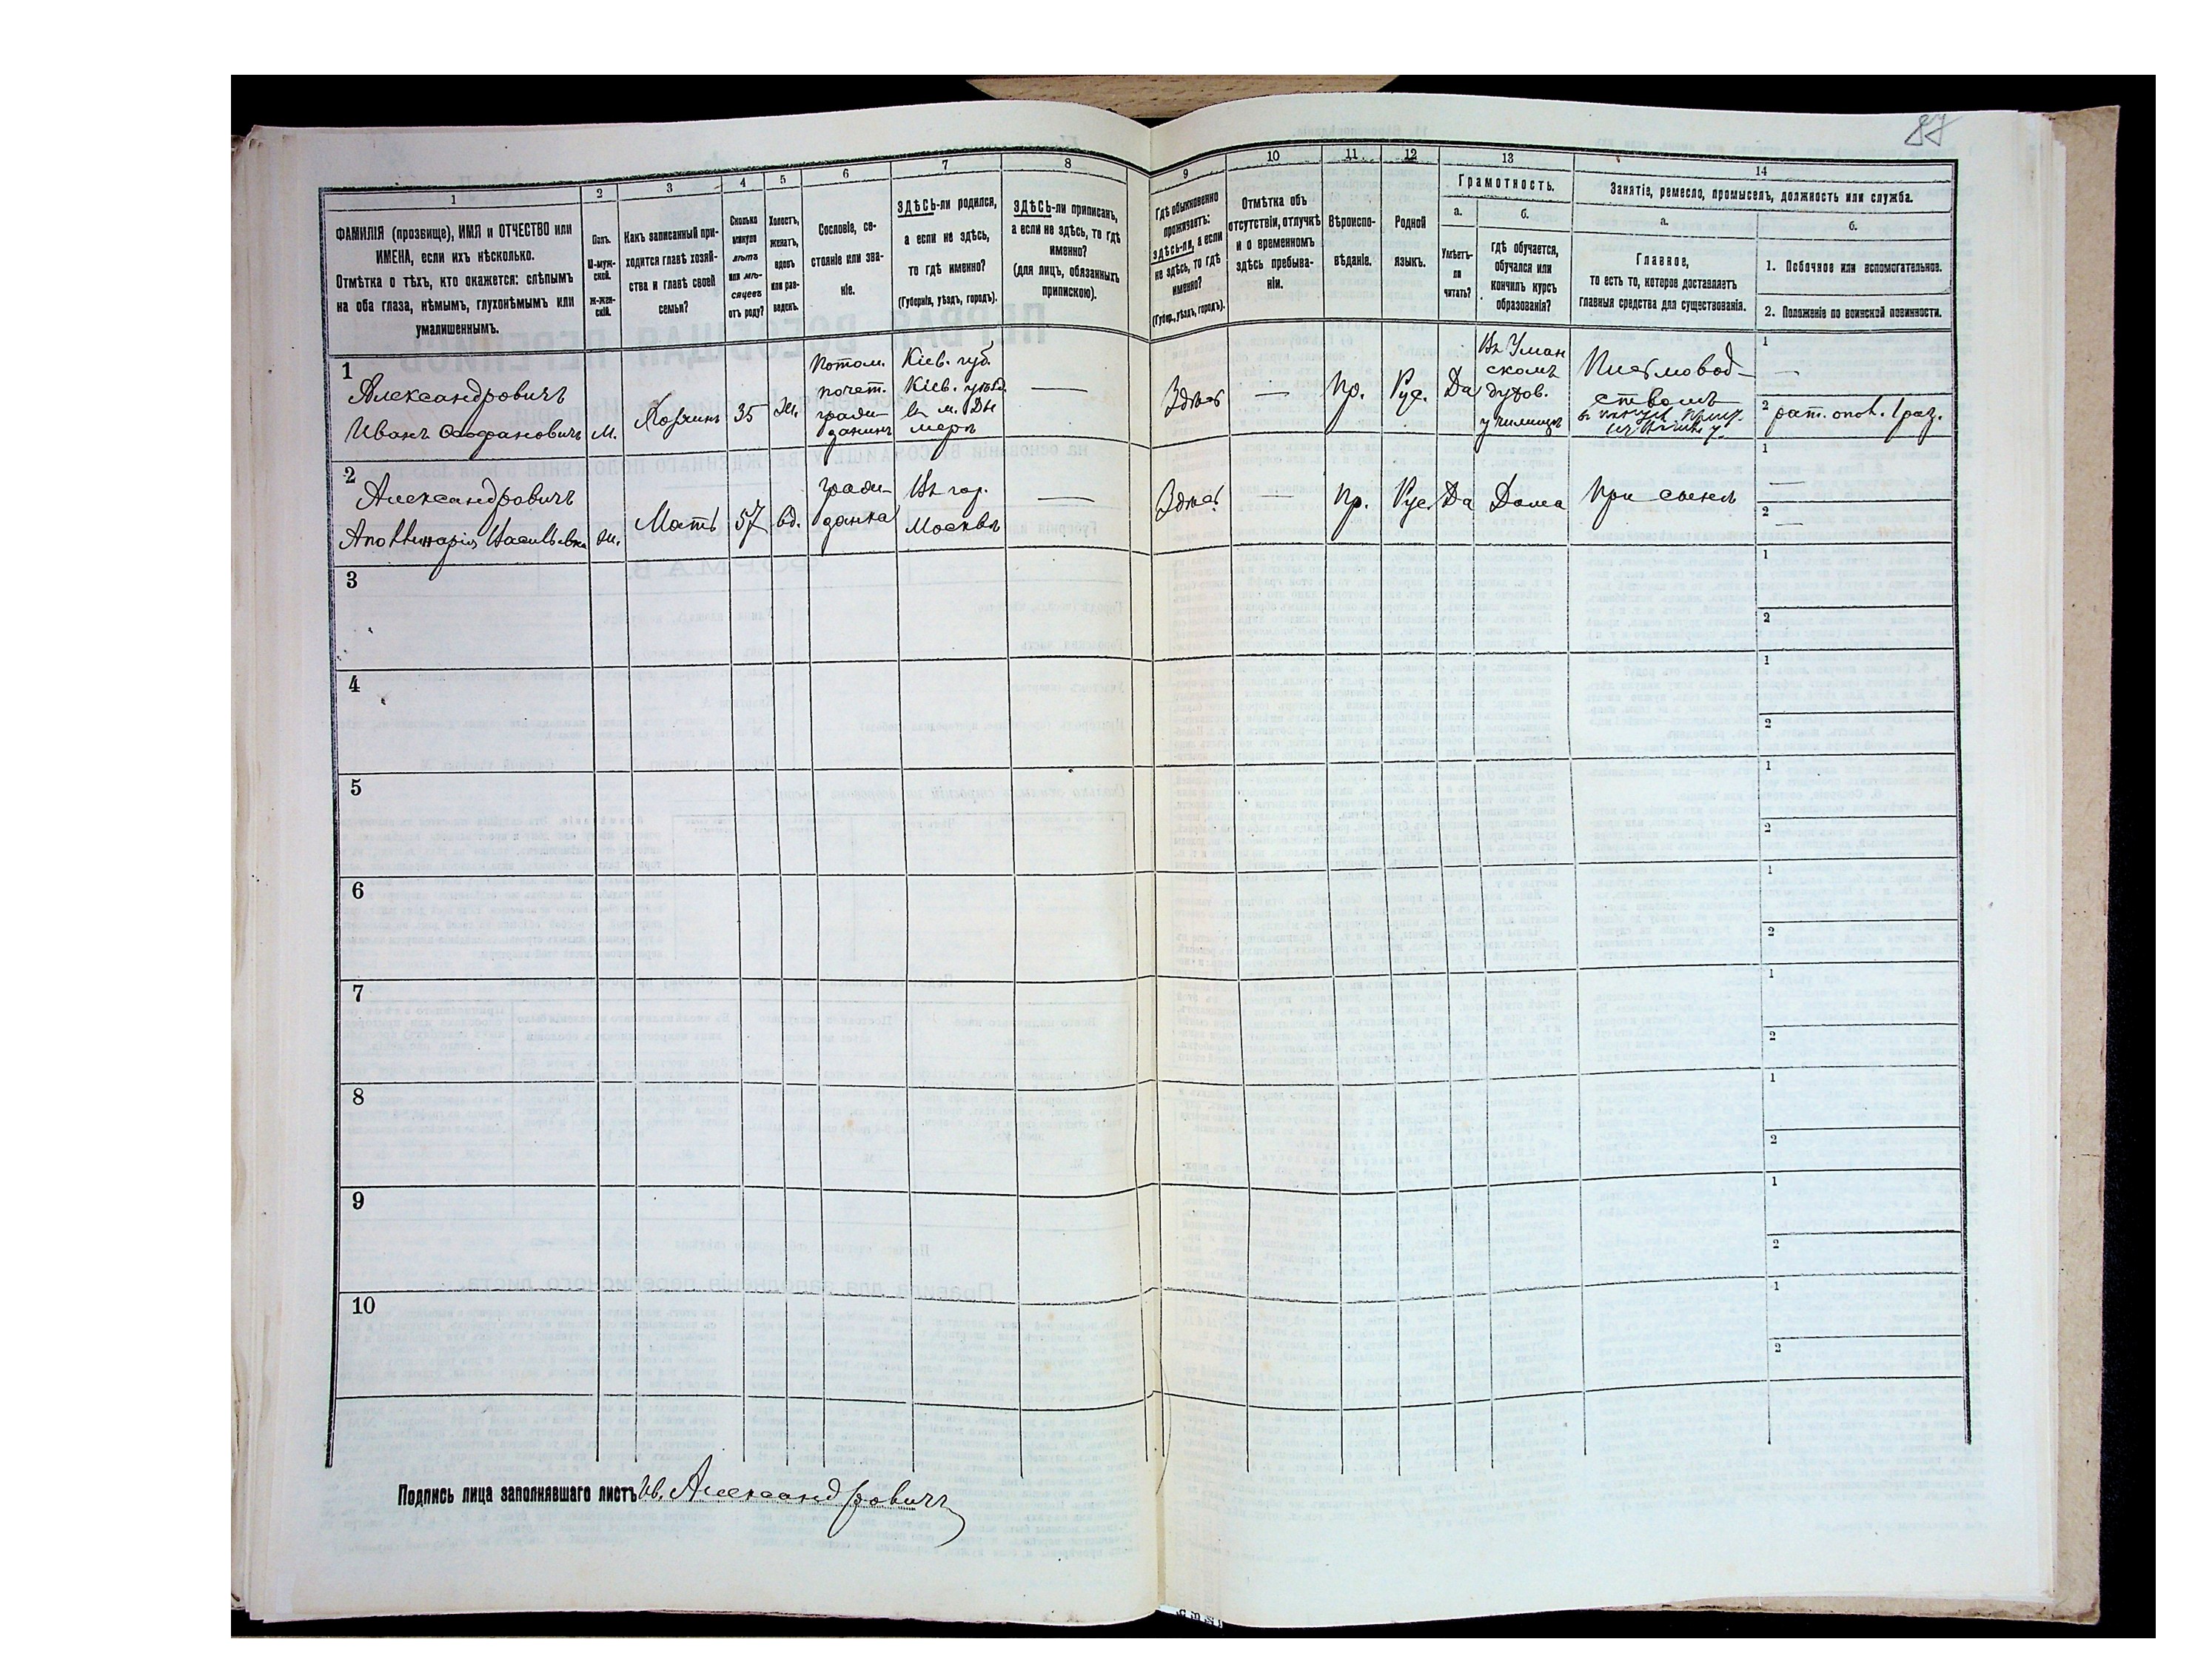 87
1
2
3
4
5
6
7
8
ФАМИЛІЯ (прозвище), ИМЯ и ОТЧЕСТВО или
ИМЕНА, если ихъ нѣсколько.
Отмѣтка о тѣхъ, кто окажется: слѣпымъ
на оба глаза, нѣмымъ, глухонѣмымъ или
умалишеннымъ.
Полъ.
М-муж-
ской.
Ж-жен-
скій.
Какъ записанный при-
ходится главѣ хозяй-
ства и главѣ своей
семьи?
Сколько
минуло
лѣтъ
или мѣ-
сяцевъ
отъ роду?
Холостъ,
женатъ,
вдовъ
или раз-
веденъ.
Сословіе, со-
стояніе или зва-
ніе.
ЗДѢСЬ-ли родился,
а если не здѣсь,
то гдѣ именно?
(Губернія, уѣздъ, городъ).
ЗДѢСЬ-ли приписанъ,
а если не здѣсь, то гдѣ
именно?
(для лицъ, обязанныхъ
припискою).
9
10
11
12
13
14
Гдѣ обыкновенно
проживаетъ:
здѣсь-ли, а если
не здѣсь, то гдѣ
именно?
(Губер., уѣздъ, городъ).
Отмѣтка объ
отсутствіи, отлучкѣ
и о временномъ
здѣсь пребыва-
ніи.
Вѣроиспо-
вѣданіе.
Родной
языкъ.
Грамотность.
а.
Умѣетъ-
ли
читать?
б.
гдѣ обучается,
обучался или
кончилъ курсъ
образованія?
Занятіе, ремесло, промыселъ, должность или служба.
а.
Главное,
то есть то, которое доставляетъ
главныя средства для существованія.
б.
1. Побочное или вспомогательное.
2. Положеніе по воинской повинности.
1
Александровичъ
Иванъ Ѳеофановичъ
М.
Хозяинъ
35
Потом.
почет.
гражд-
данинъ
Кіев. губ.
Кіев. уѣзд.
—
Здѣсь
—
Пр.
Рус.
Да
Въ Уман
скомъ
духов.
училищѣ
Письмовод-
ствомъ
1
—
2 рат. опол. 1 раз.
2
Александровичъ
Аполлинарія Васильевна
Ж.
Мать
57
вд.
граж-
данка
Въ гор.
Москвѣ
—
Здѣсь
—
Пр.
Рус.
Да
Дома
При сынѣ
1
—
2
—
3
1
2
4
1
2
5
1
2
6
1
2
7
1
2
8
1
2
9
1
2
10
1
2
Подпись лица заполнявшаго листъ Ив. Александровичъ